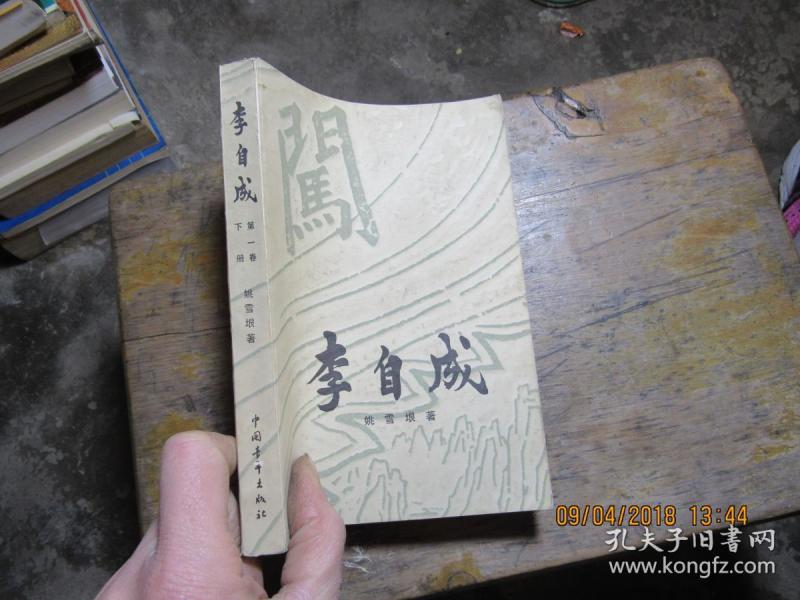 李自成
第一卷
下册
姚雪垠著
中国青年出版社
闯
李自成
姚雪垠著
09/04/2018 13:44
孔夫子旧书网
www.kongfz.com